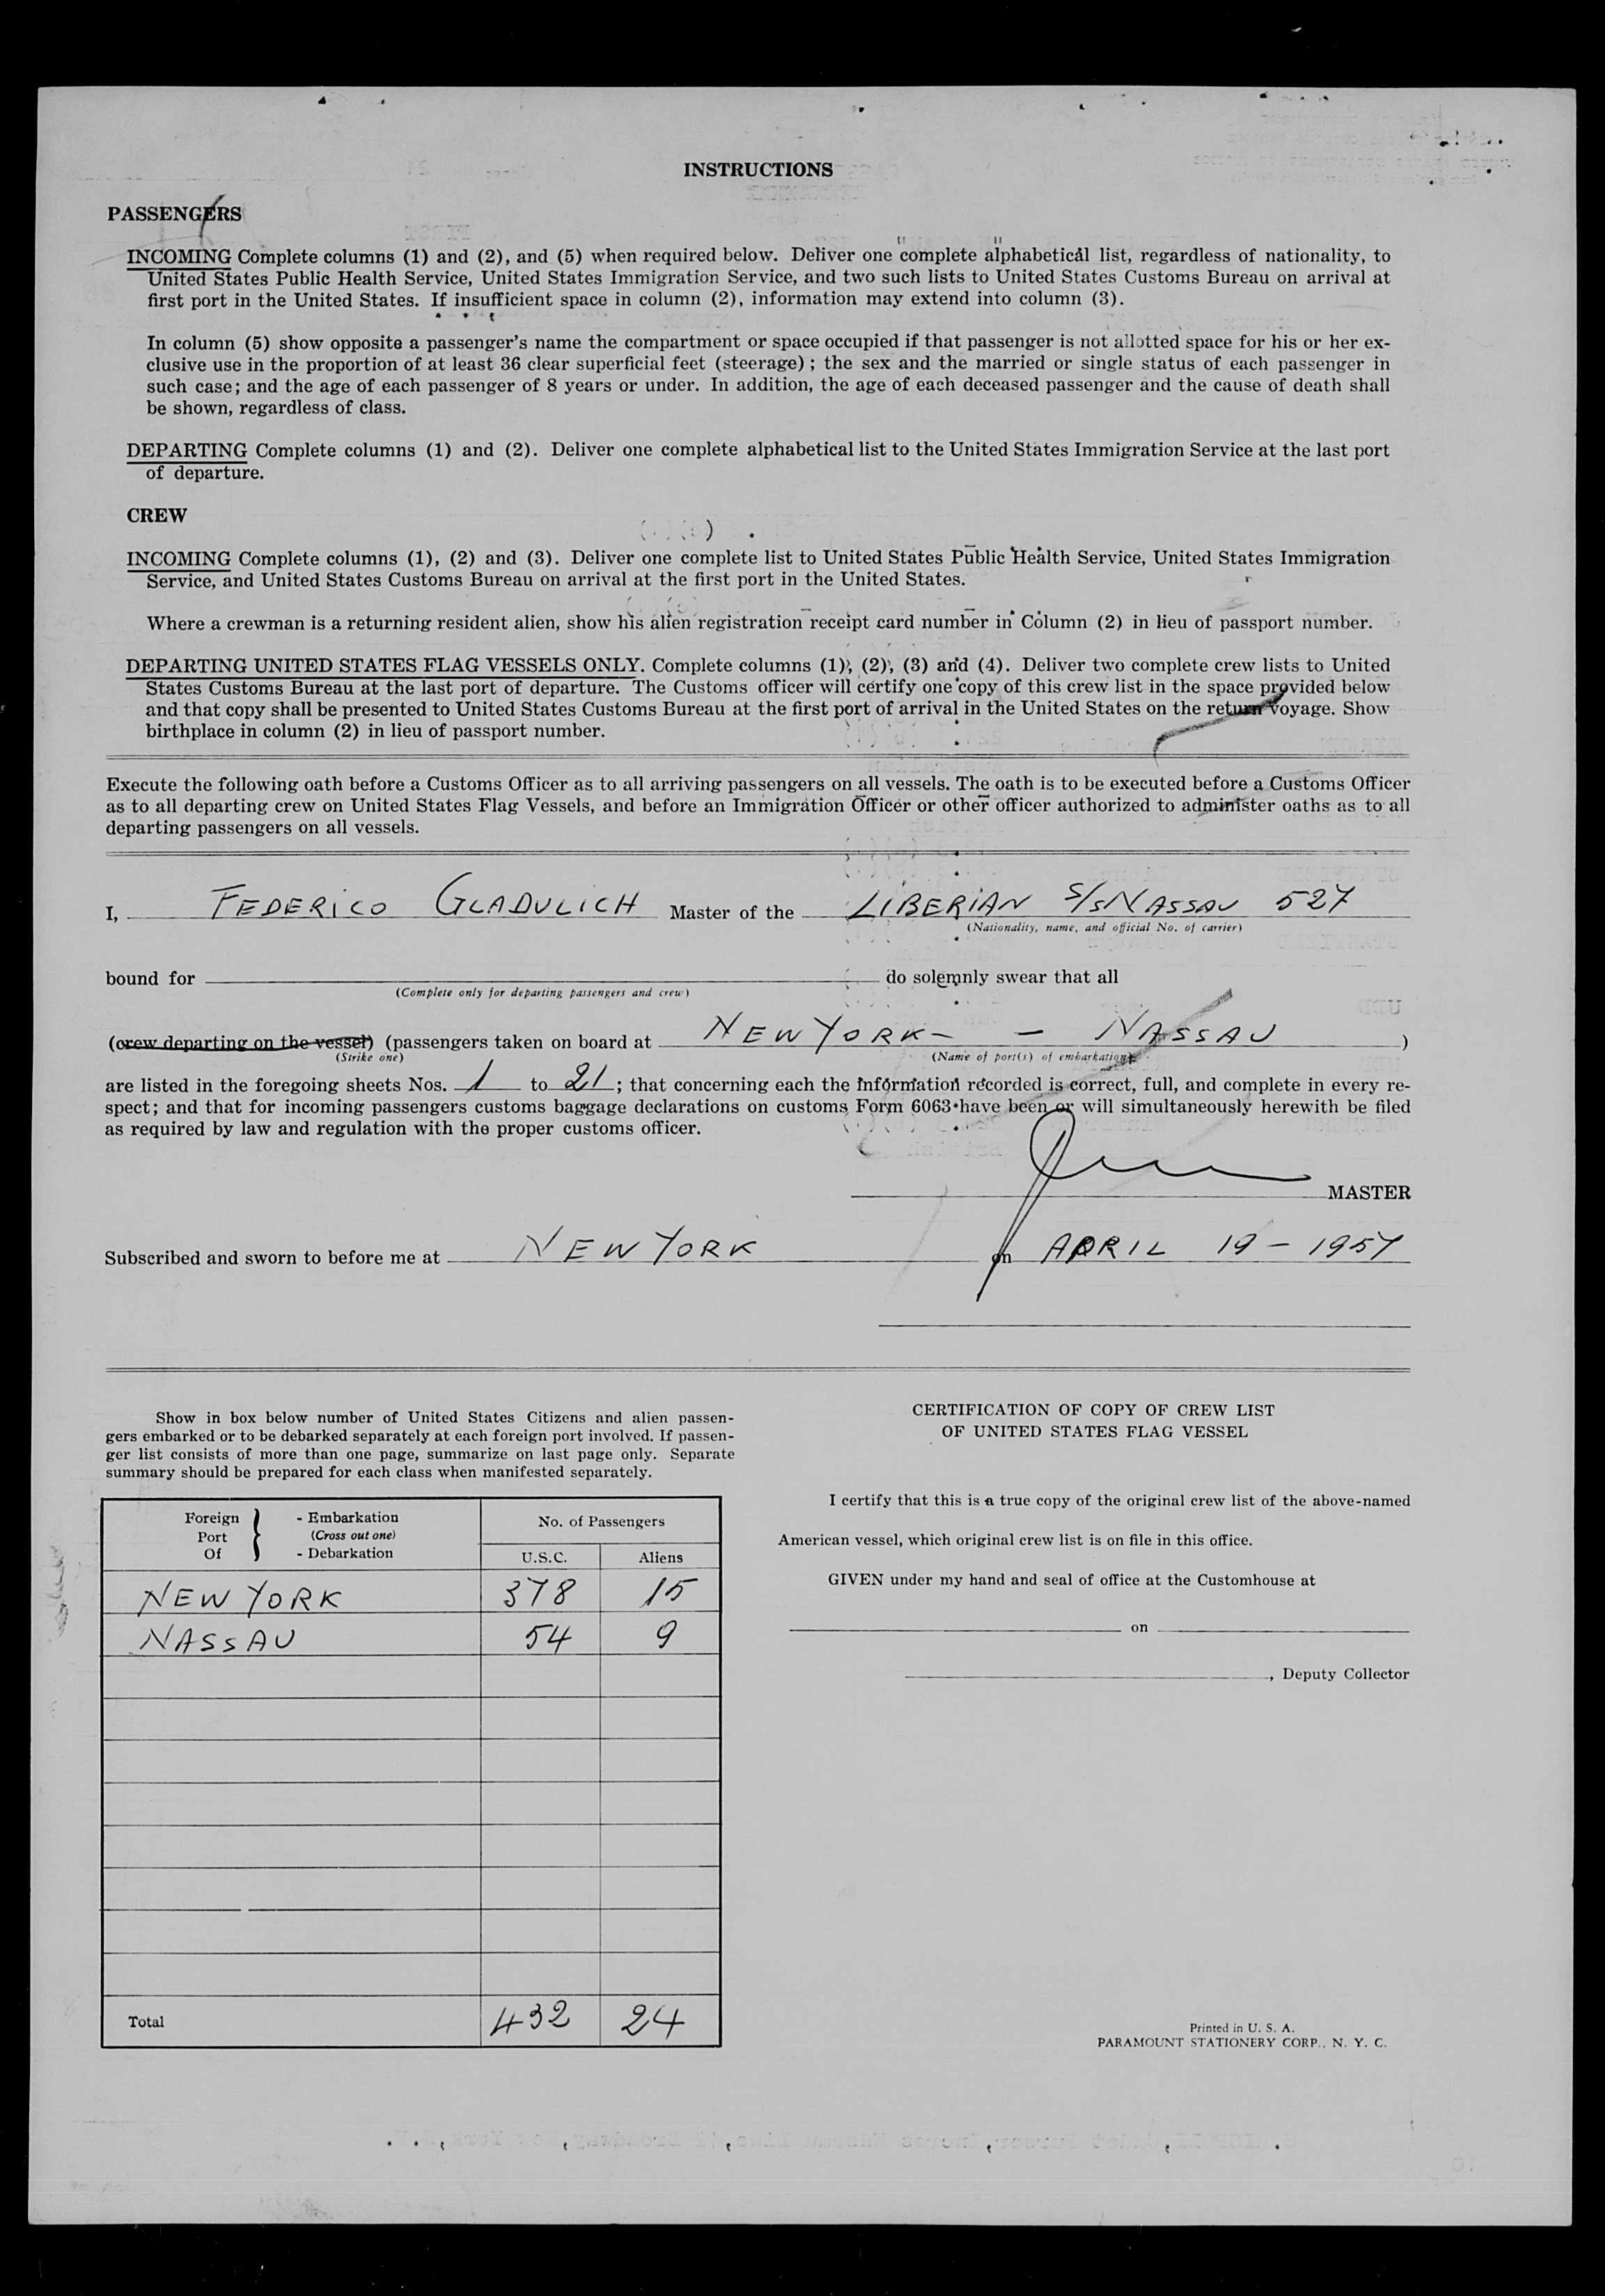 INSTRUCTIONS
PASSENGERS
INCOMING Complete columns (1) and (2), and (5) when required below. Deliver one complete alphabetical list, regardless of nationality, to
United States Public Health Service, United States Immigration Service, and two such lists to United States Customs Bureau on arrival at
first port in the United States. If insufficient space in column (2), information may extend into column (3).
In column (5) show opposite a passenger's name the compartment or space occupied if that passenger is not allotted space for his or her ex-
clusive use in the proportion of at least 36 clear superficial feet (steerage); the sex and the married or single status of each passenger in
such case; and the age of each passenger of 8 years or under. In addition, the age of each deceased passenger and the cause of death shall
be shown, regardless of class.
DEPARTING Complete columns (1) and (2). Deliver one complete alphabetical list to the United States Immigration Service at the last port
of departure.
CREW
INCOMING Complete columns (1), (2) and (3). Deliver one complete list to United States Public Health Service, United States Immigration
Service, and United States Customs Bureau on arrival at the first port in the United States.
Where a crewman is a returning resident alien, show his alien registration receipt card number in Column (2) in lieu of passport number.
DEPARTING UNITED STATES FLAG VESSELS ONLY. Complete columns (1), (2), (3) and (4). Deliver two complete crew lists to United
States Customs Bureau at the last port of departure. The Customs officer will certify one copy of this crew list in the space provided below
and that copy shall be presented to United States Customs Bureau at the first port of arrival in the United States on the return voyage. Show
birthplace in column (2) in lieu of passport number.
Execute the following oath before a Customs Officer as to all arriving passengers on all vessels. The oath is to be executed before a Customs Officer
as to all departing crew on United States Flag Vessels, and before an Immigration Officer or other officer authorized to administer oaths as to all
departing passengers on all vessels.
I, FEDERICO GLADULICH Master of the LIBERIAN S/S NASSAU 527
(Nationality, name, and official No. of carrier)
bound for do solemnly swear that all
(Complete only for departing passengers and crew)
(crew departing on the vessel) (passengers taken on board at NEW YORK - - NASSAU )
(Strike one) (Name of port(s) of embarkation)
are listed in the foregoing sheets Nos. 1 to 21; that concerning each the information recorded is correct, full, and complete in every re-
spect; and that for incoming passengers customs baggage declarations on customs Form 6063 have been or will simultaneously herewith be filed
as required by law and regulation with the proper customs officer.
MASTER
Subscribed and sworn to before me at NEW YORK on APRIL 19 - 1957
Show in box below number of United States Citizens and alien passen-
gers embarked or to be debarked separately at each foreign port involved. If passen-
ger list consists of more than one page, summarize on last page only. Separate
summary should be prepared for each class when manifested separately.
Foreign Port Of } - Embarkation (Cross out one) - Debarkation
No. of Passengers
U.S.C. Aliens
NEW YORK 378 15
NASSAU 54 9
Total 432 24
CERTIFICATION OF COPY OF CREW LIST
OF UNITED STATES FLAG VESSEL
I certify that this is a true copy of the original crew list of the above-named
American vessel, which original crew list is on file in this office.
GIVEN under my hand and seal of office at the Customhouse at
on
, Deputy Collector
Printed in U. S. A.
PARAMOUNT STATIONERY CORP., N. Y. C.